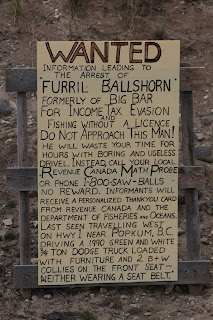 WANTED
INFORMATION LEADING TO
THE ARREST OF
FURRIL BALLSHORN
FORMERLY OF BIG BAR
FOR INCOME TAX EVASION
AND
FISHING WITHOUT A LICENCE
DO NOT APPROACH THIS MAN!
HE WILL WASTE YOUR TIME FOR
HOURS WITH BORING AND USELESS
DRIVEL. INSTEAD, CALL YOUR LOCAL
REVENUE CANADA MATH PROBE
OR PHONE 1-800-SAW-BALLS
NO REWARD. INFORMANTS WILL
RECEIVE A PERSONALIZED THANKYOU CARD
FROM REVENUE CANADA AND THE
DEPARTMENT OF FISHERIES AND OCEANS.
LAST SEEN TRAVELLING WEST
ON HWY 1 NEAR POPKUM, B.C.
DRIVING A 1990 GREEN AND WHITE
3/4 TON DODGE TRUCK LOADED
WITH FURNITURE AND 2 B+W
COLLIES ON THE FRONT SEAT –
NEITHER WEARING A SEAT BELT.